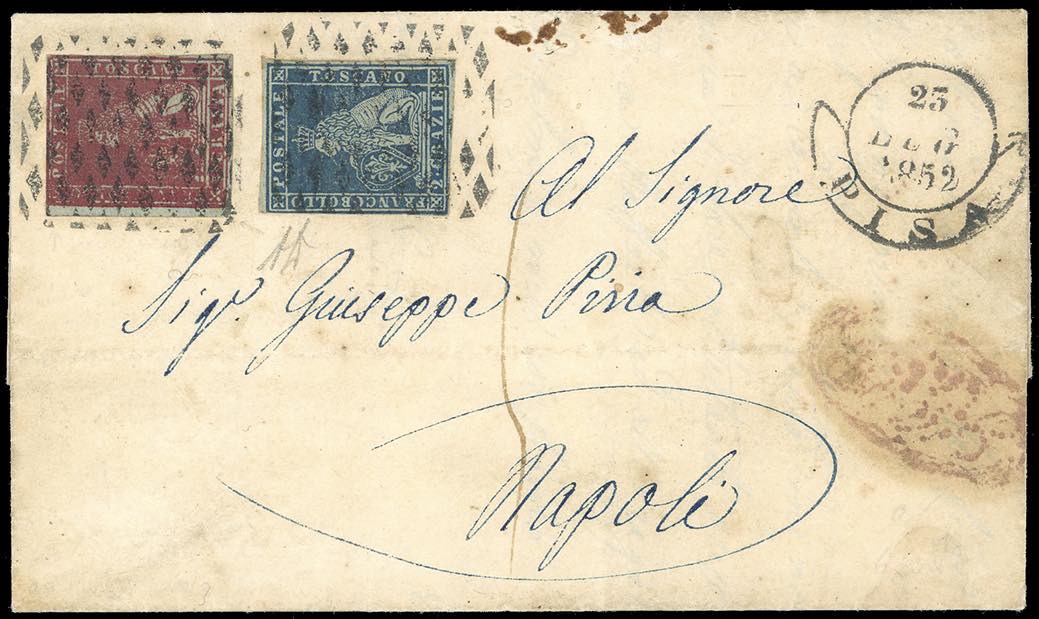 POSTALE TOSCANO
POSTALE TOSCANO
FRANCOBOLLO
2. CRAZIE
25
1852
PISA
Al Signore
Sigr. Giuseppe Piria
Napoli